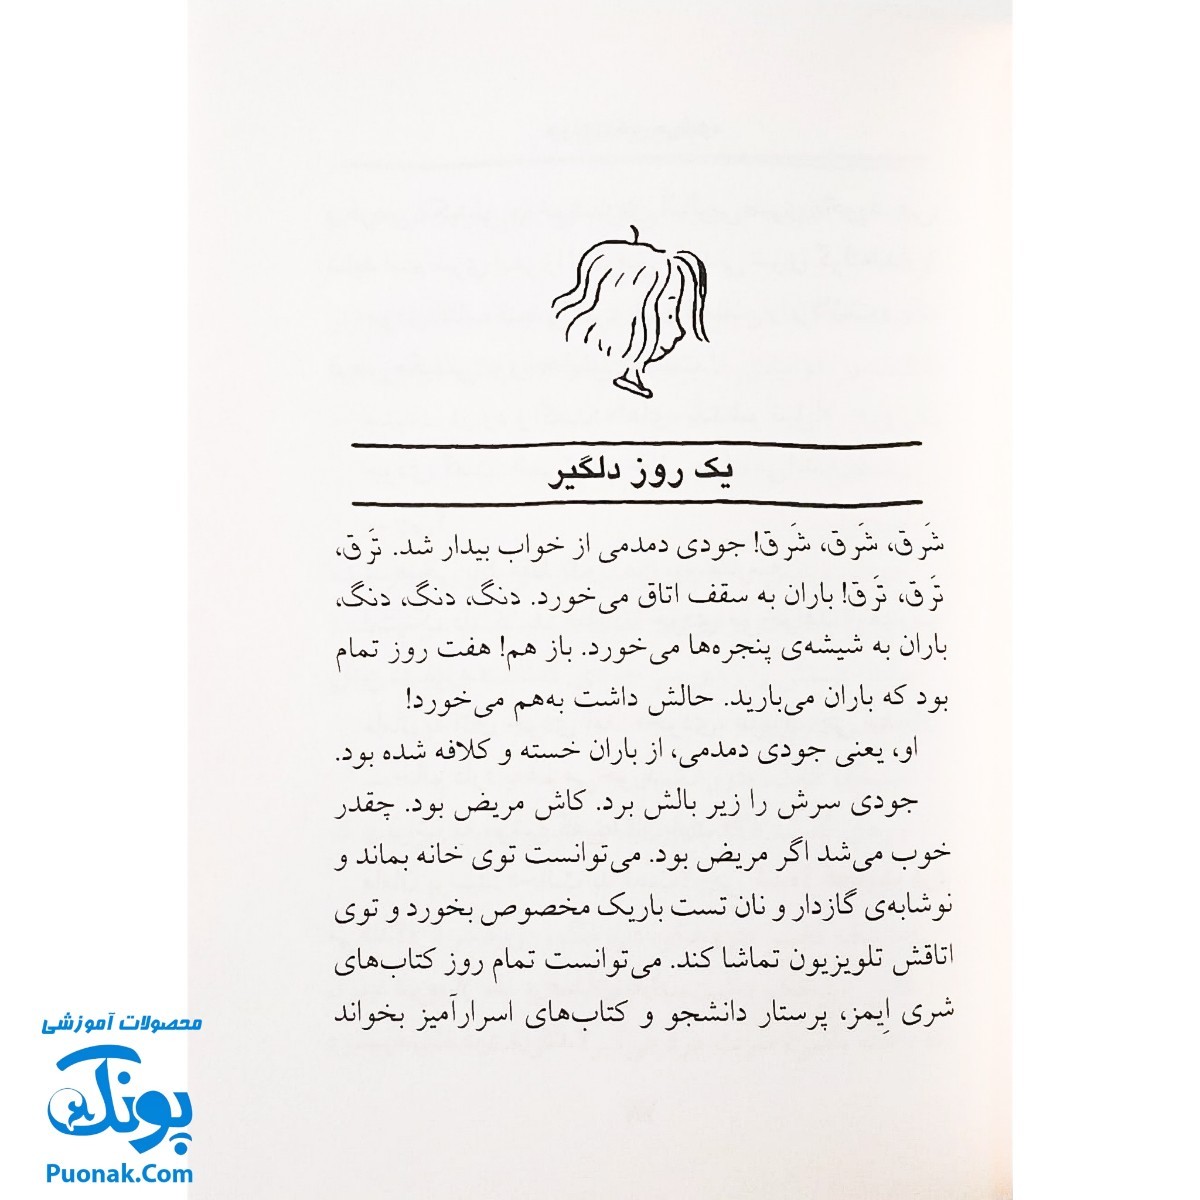 یک روز دلگیر
شَرق، شَرق، شَرق! جودی دمدمی از خواب بیدار شد. تَرق،
تَرق، تَرق! باران به سقف اتاق می‌خورد. دنگ، دنگ، دنگ،
باران به شیشه‌ی پنجره‌ها می‌خورد. باز هم! هفت روز تمام
بود که باران می‌بارید. حالش داشت به‌هم می‌خورد!
او، یعنی جودی دمدمی، از باران خسته و کلافه شده بود.
جودی سرش را زیر بالش برد. کاش مریض بود. چقدر
خوب می‌شد اگر مریض بود. می‌توانست توی خانه بماند و
نوشابه‌ی گازدار و نان تست باریک مخصوص بخورد و توی
اتاقش تلویزیون تماشا کند. می‌توانست تمام روز کتاب‌های
شری اِیمز، پرستار دانشجو و کتاب‌های اسرارآمیز بخواند
محصولات آموزشی
پونک
Puonak.Com